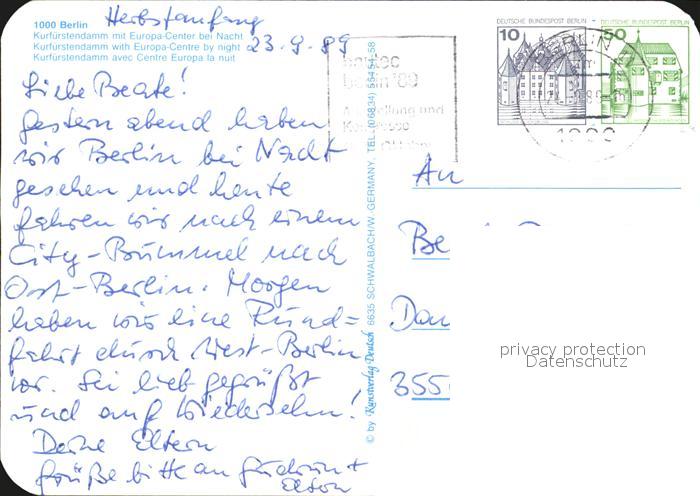 1000 Berlin
Kurfürstendamm mit Europa-Center bei Nacht
Kurfürstendamm with Europa-Centre by night
Kurfürstendamm avec Centre Europa la nuit
Herbstanfang
23.9.89
Liebe Beate!
Gestern abend haben
wir Berlin bei Nacht
gesehen und heute
fahren wir nach einem
City-Bummel nach
Ost-Berlin. Morgen
haben wir eine Rund=
fahrt durch West-Berlin
vor. Sei lieb gegrüßt
und auf Wiedersehn!
Deine Eltern
Grüße bitte an Gudrun +
© by Kunstverlag Deutsch 6635 SCHWALBACH/W.-GERMANY, TEL. (06834) 554 51-58
berlin '89
Ausstellung und
Kongresse
DEUTSCHE BUNDESPOST BERLIN
10
DEUTSCHE BUNDESPOST BERLIN
50
BERLIN
1000
An
Be
355
privacy protection
Datenschutz